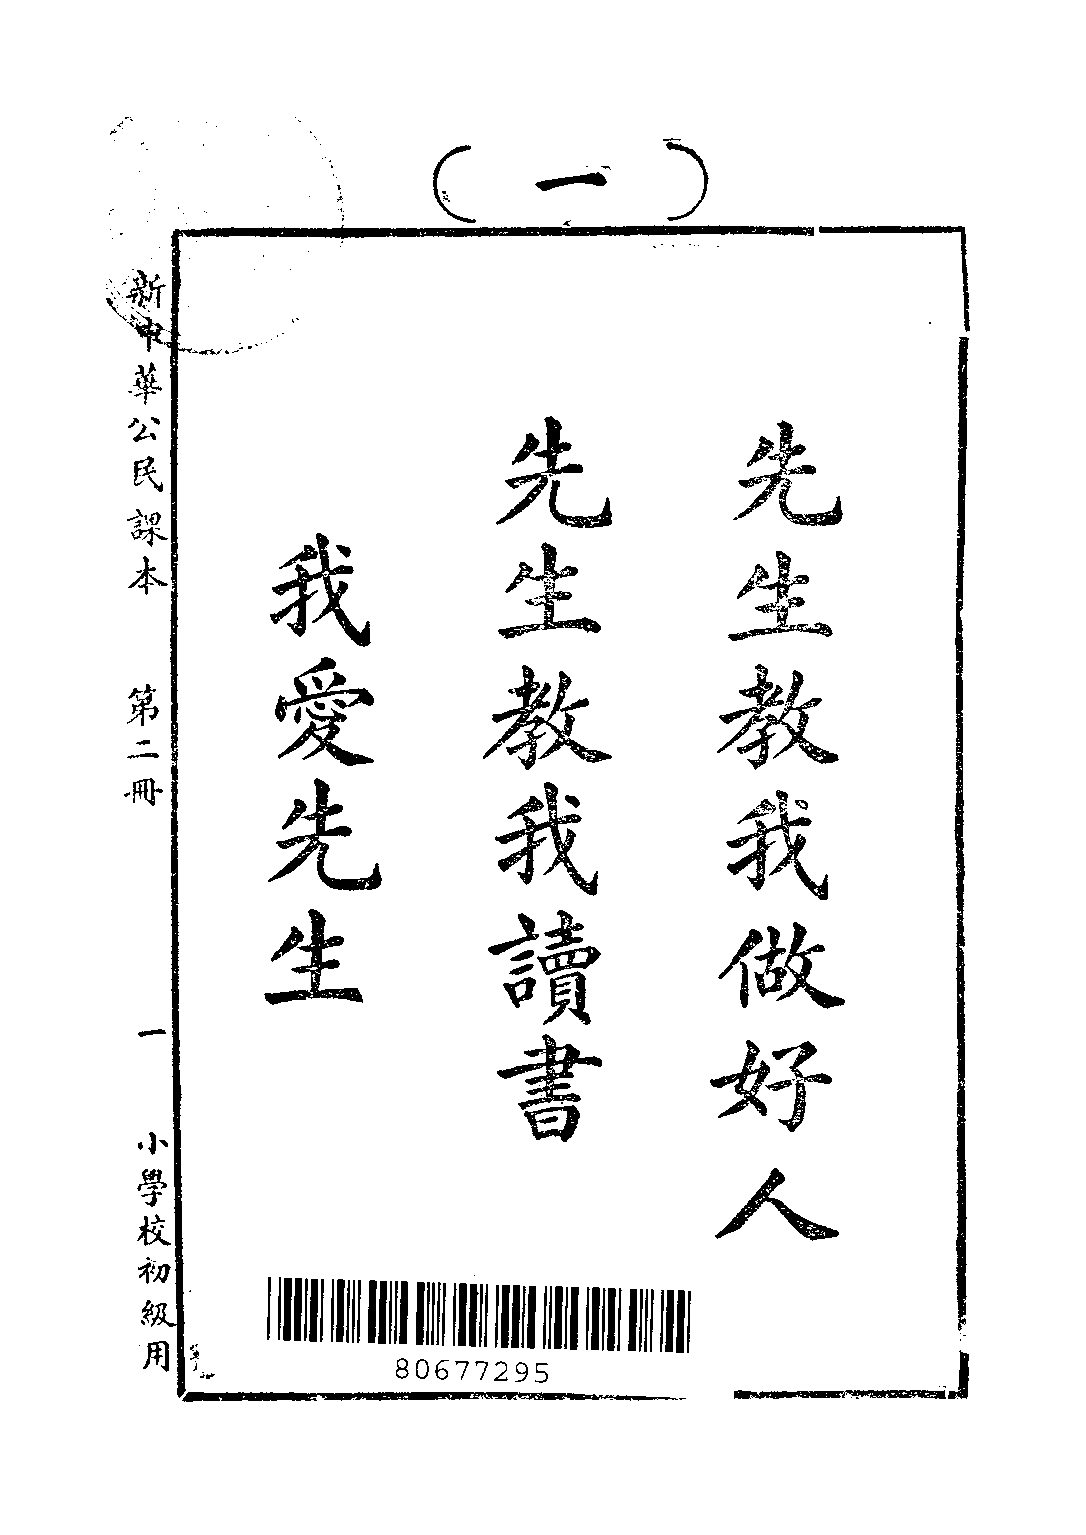 （一）
先生教我做好人
先生教我讀書
我愛先生
新中華公民課本 第二冊 一 小學校初級用
80677295